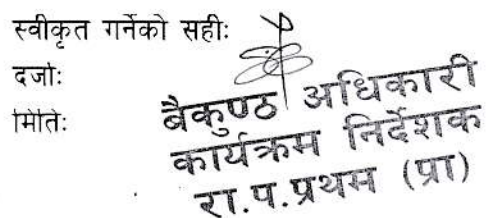 स्वीकृत गर्नेको सहीः
दर्जाः
मितिः
बैकुण्ठ अधिकारी
कार्यक्रम निर्देशक
रा.प.प्रथम (प्रा)